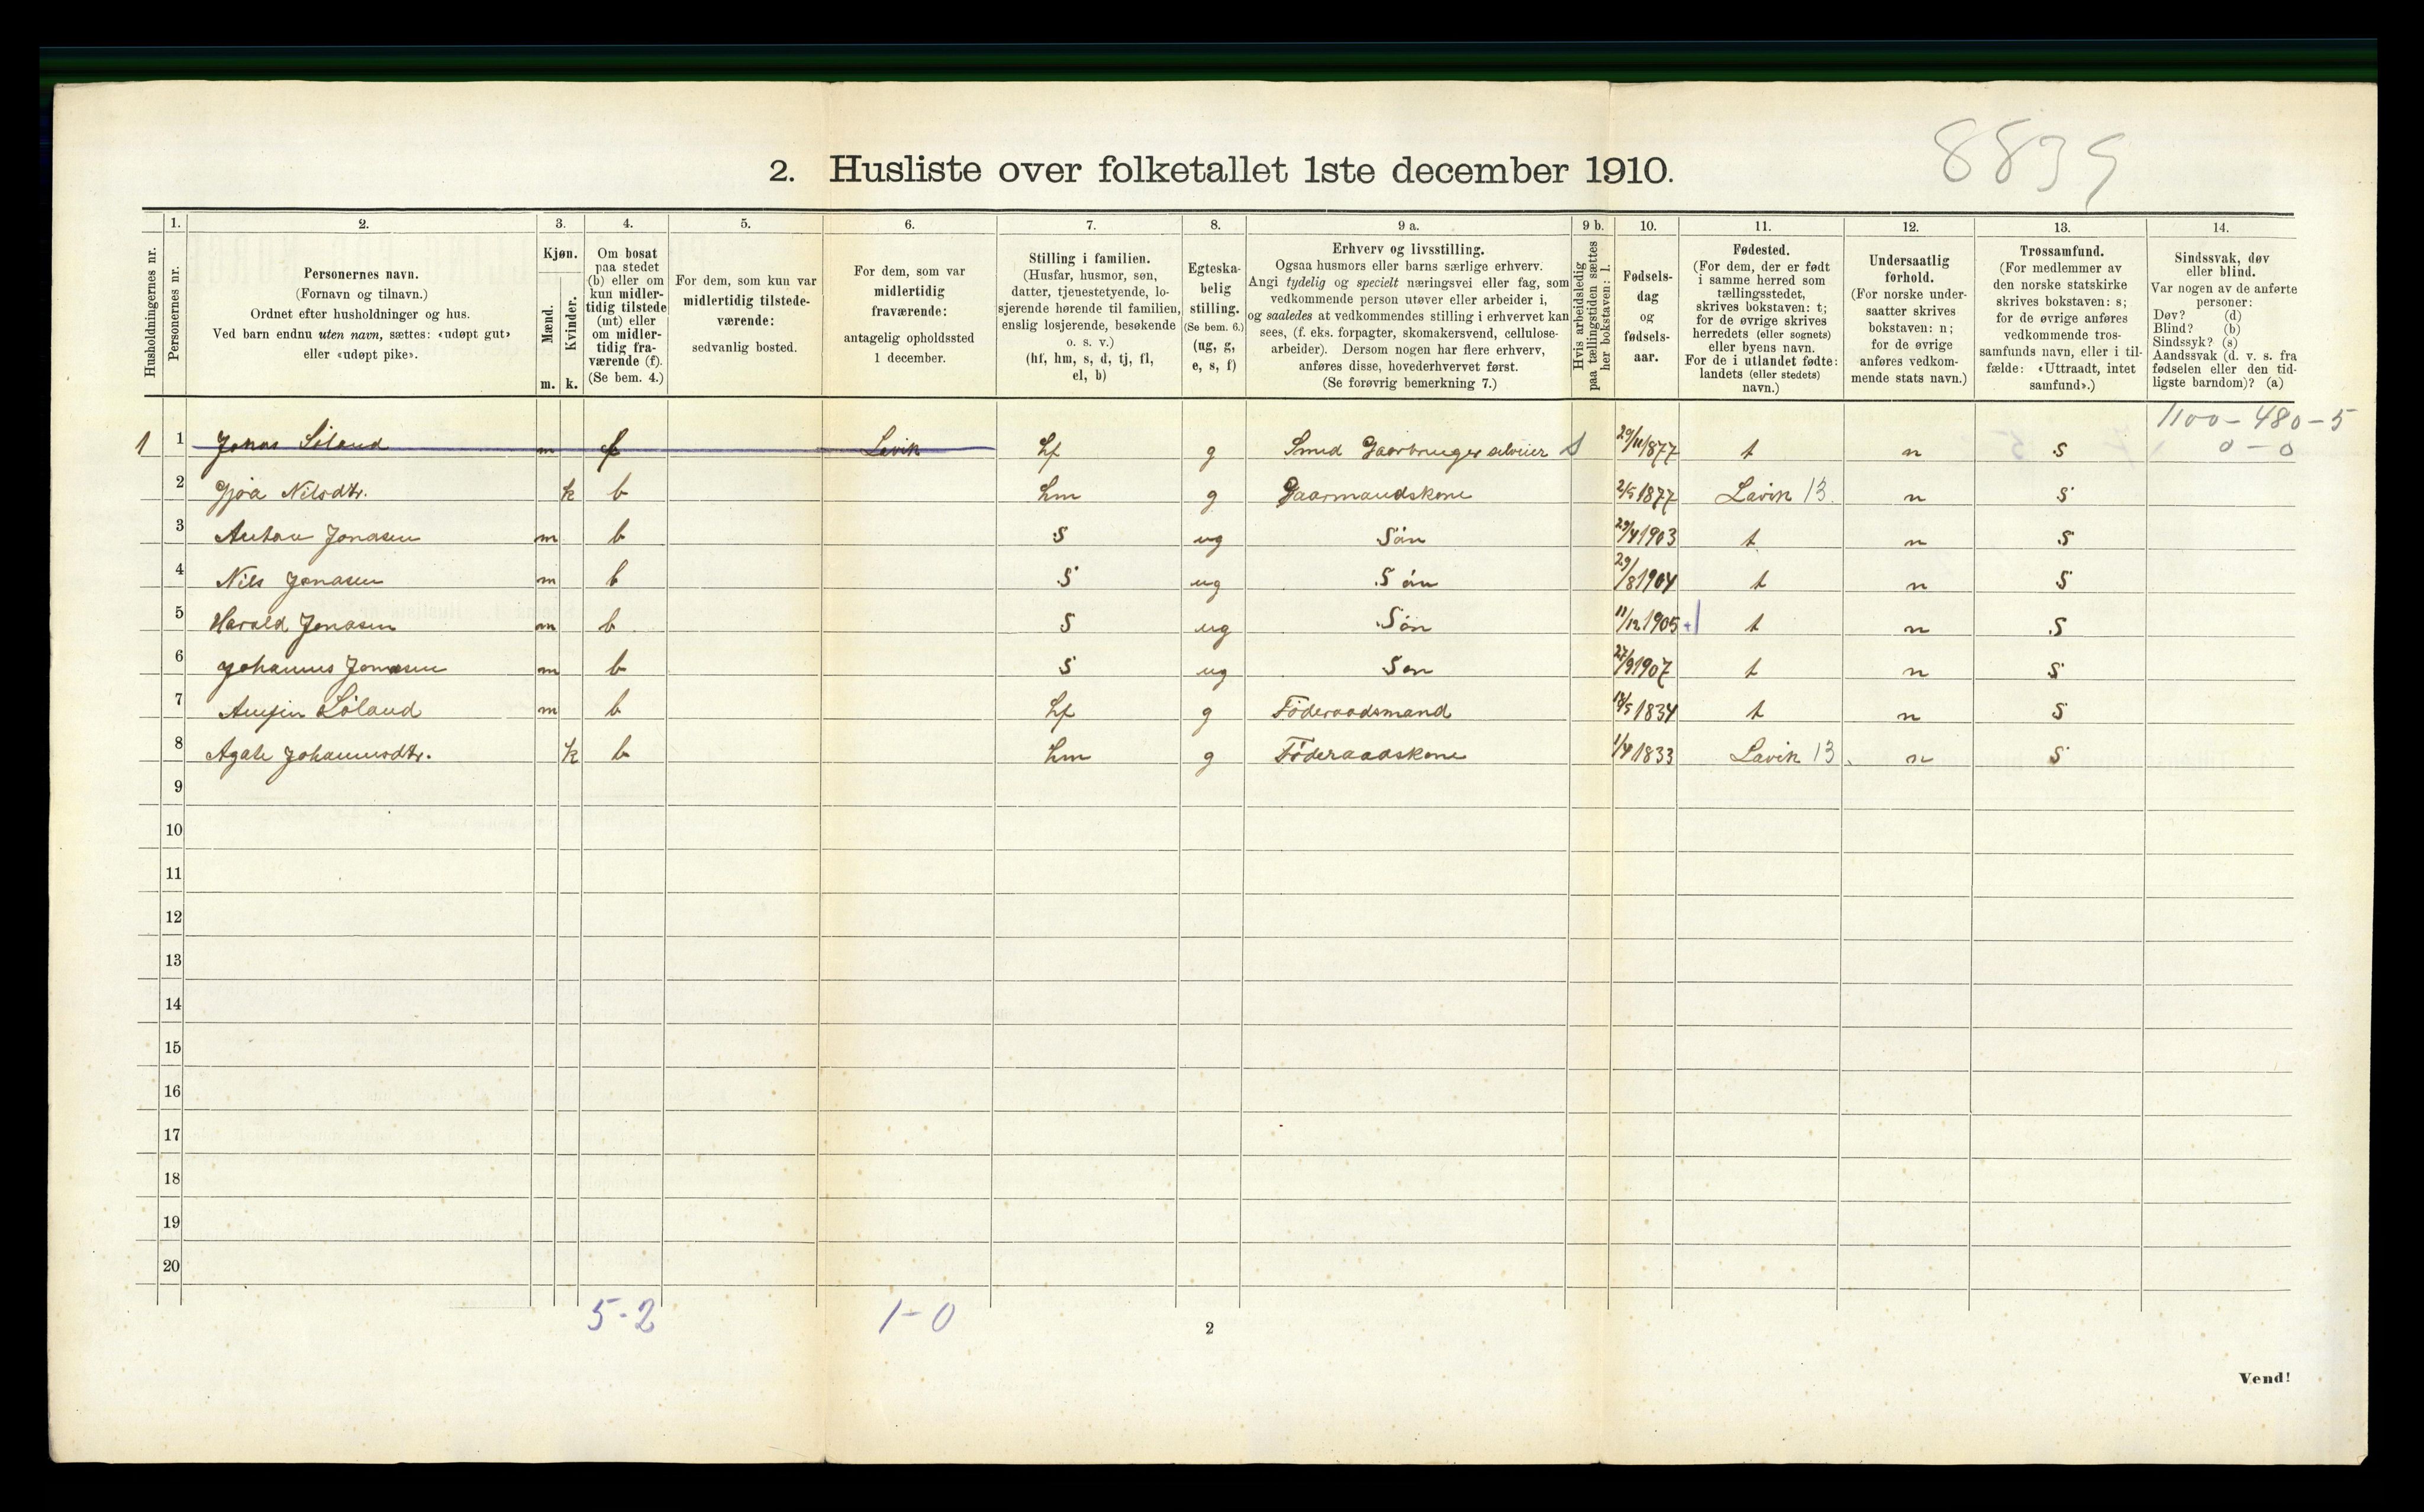 8839
2. Husliste over folketallet 1ste december 1910.
Husholdningernes nr.
1.
Personernes nr.
2.
Personernes navn.
(Fornavn og tilnavn.)
Ordnet efter husholdninger og hus.
Ved barn endnu uten navn, sættes: «udøpt gut»
eller «udøpt pike».
3.
Kjøn.
Mænd.
Kvinder.
m. k.
4.
Om bosat
paa stedet
(b) eller om
kun midler-
tidig tilstede
(mt) eller
om midler-
tidig fra-
værende (f).
(Se bem. 4.)
5.
For dem, som kun var
midlertidig tilstede-
værende:
sedvanlig bosted.
6.
For dem, som var
midlertidig
fraværende:
antagelig opholdssted
1 december.
7.
Stilling i familien.
(Husfar, husmor, søn,
datter, tjenestetyende, lo-
sjerende hørende til familien,
enslig losjerende, besøkende
o. s. v.)
(hf, hm, s, d, tj, fl,
el, b)
8.
Egteska-
belig
stilling.
(Se bem. 6.)
(ug, g,
e, s, f)
9 a.
Erhverv og livsstilling.
Ogsaa husmors eller barns særlige erhverv.
Angi tydelig og specielt næringsvei eller fag, som
vedkommende person utøver eller arbeider i,
og saaledes at vedkommendes stilling i erhvervet kan
sees, (f. eks. forpagter, skomakersvend, cellulose-
arbeider). Dersom nogen har flere erhverv,
anføres disse, hovederhvervet først.
(Se forøvrig bemerkning 7.)
9 b.
Hvis arbeidsledig
paa tællingstiden sættes
her bokstaven: l.
10.
Fødsels-
dag
og
fødsels-
aar.
11.
Fødested.
(For dem, der er født
i samme herred som
tællingsstedet,
skrives bokstaven: t;
for de øvrige skrives
herredets (eller sognets)
eller byens navn.
For de i utlandet fødte:
landets (eller stedets)
navn.)
12.
Undersaatlig
forhold.
(For norske under-
saatter skrives
bokstaven: n;
for de øvrige
anføres vedkom-
mende stats navn.)
13.
Trossamfund.
(For medlemmer av
den norske statskirke
skrives bokstaven: s;
for de øvrige anføres
vedkommende tros-
samfunds navn, eller i til-
fælde: «Uttraadt, intet
samfund».)
14.
Sindssvak, døv
eller blind.
Var nogen av de anførte
personer:
Døv? (d)
Blind? (b)
Sindssyk? (s)
Aandssvak (d. v. s. fra
fødselen eller den tid-
ligste barndom)? (a)
1100-480-5
0-0
1 1 Jonas Söland m f Lavik hf g Smed Gaarbruger selveier s 29/11 1877 t n s
2 Gjöa Nilsdtr. k b hm g Gaarmandskone 2/5 1877 Lavik 13 n s
3 Anton Jonasen m b s ug Sön 29/4 1903 t n s
4 Nils Jonasen m b s ug Sön 29/8 1904 t n s
5 Harald Jonasen m b s ug Sön 11/12 1905 t n s
6 Johannes Jonasen m b s ug Sön 27/9 1907 t n s
7 Anfin Söland m b hf g Föderaadsmand 1834 t n s
8 Agate Johannesdtr. k b hm g Föderaadskone 1/4 1833 Lavik 13 n s
9
10
11
12
13
14
15
16
17
18
19
20
5-2 1-0
2
Vend!